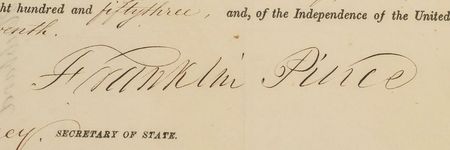 ht hundred and fiftythree, and, of the Independence of the United
venth.
Franklin Pierce
cey, SECRETARY OF STATE.